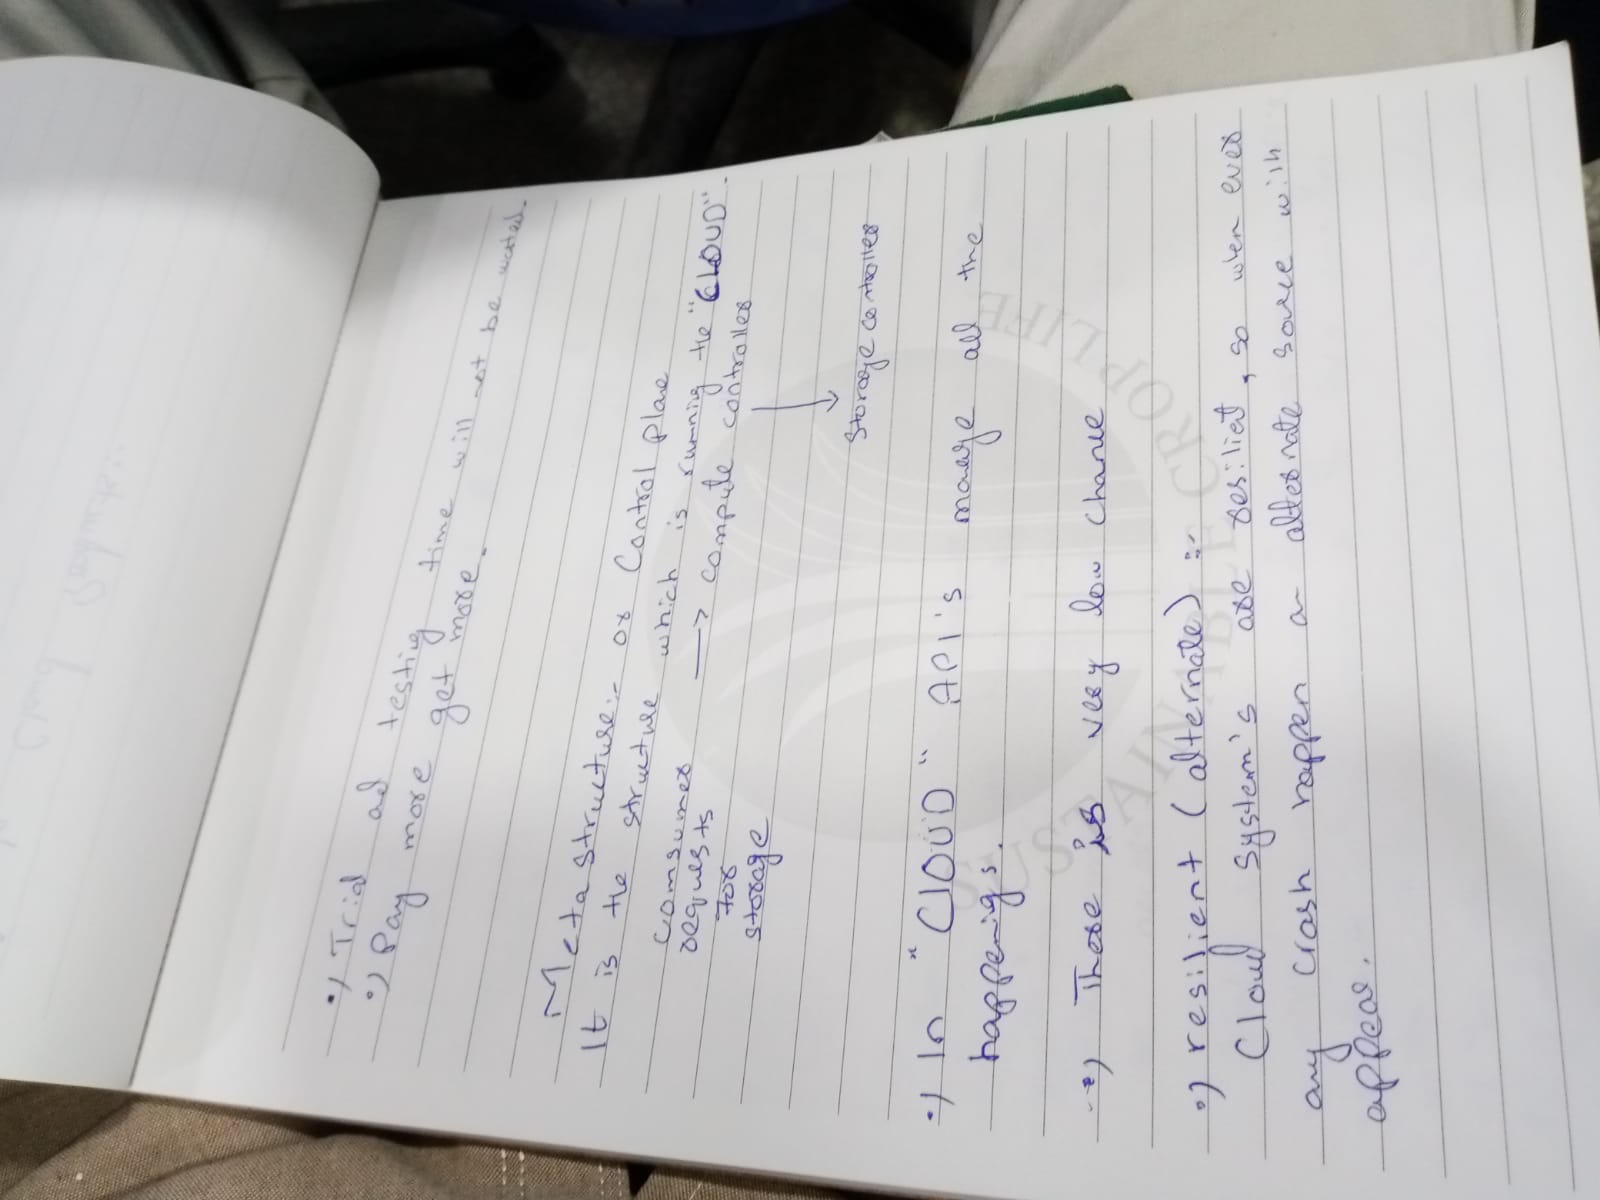 •) Trial and testing time will not be wasted.
•) Pay more get more.
Metastructure:- or Control plane
It is the structure which is running the "CLOUD".
consumer
requests → compute controller
for
storage
storage controller
•) In "CLOUD" API's manage all the
happenigs.
•) There is very low chance
•) resilient (alternate) :-
Cloud system's are resilient, so when ever
any crash happen an alternate source will
appear.
SUSTAINABLE CROPLIFE